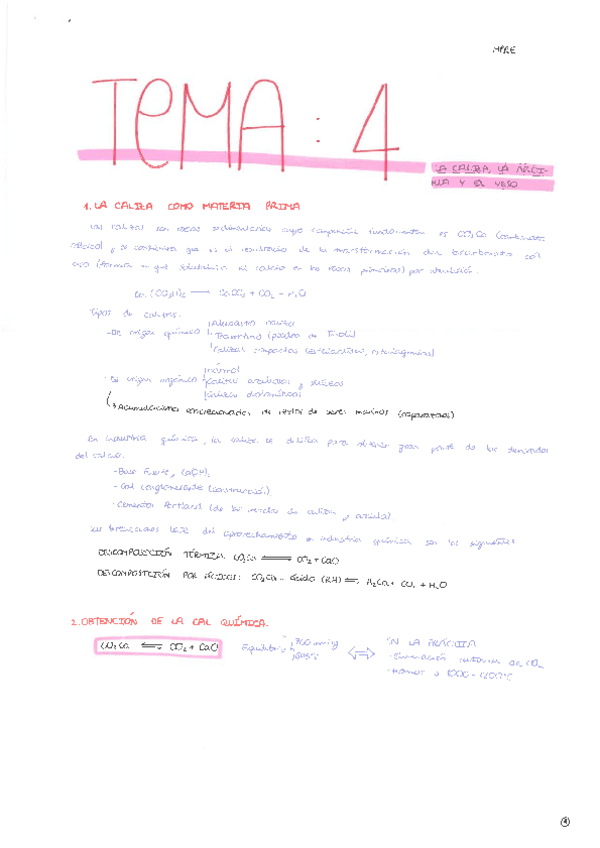 MPRE
TEMA: 4
LA CALIZA, LA ARCI-
LLA Y EL YESO
1. LA CALIZA COMO MATERIA PRIMA
Las calizas son rocas sedimentarias cuyo componente fundamental es CO3Ca (carbonato
cálcico) y se considera que es el resultado de la transformación del bicarbonato cál-
cico (forma en que se solubiliza el calcio en las rocas primarias) por ebullición.
CaCO3 + CO2 + H2O
Tipos de calizas:
- De origen químico
Travertino (piedra de Tívoli)
Calizas compactas (estalactitas, estalagmitas)
- De origen orgánico
mármol
calizas arcillosas y silíceas
Acumulaciones de restos de seres marinos (caparazones)
En industria química, la caliza se utiliza para obtener gran parte de los derivados
del calcio:
- Base fuerte, Ca(OH)2
- Cal conglomerante (construcción)
- Cementos Portland (de las mezclas de caliza y arcilla).
Las reacciones base del aprovechamiento en industria química son las siguientes
DESCOMPOSICIÓN TÉRMICA: CO3Ca ⇌ CO2 + CaO
DESCOMPOSICIÓN POR ÁCIDOS: CO3Ca + Ácido (RH) ⇌ R2Ca + CO2 + H2O
2. OBTENCIÓN DE LA CAL QUÍMICA.
CO3Ca ⇌ CO2 + CaO
Equilibrio
760 mmHg
EN LA PRÁCTICA
- Eliminación continua de CO2
- Hornos a 1000-1200ºC